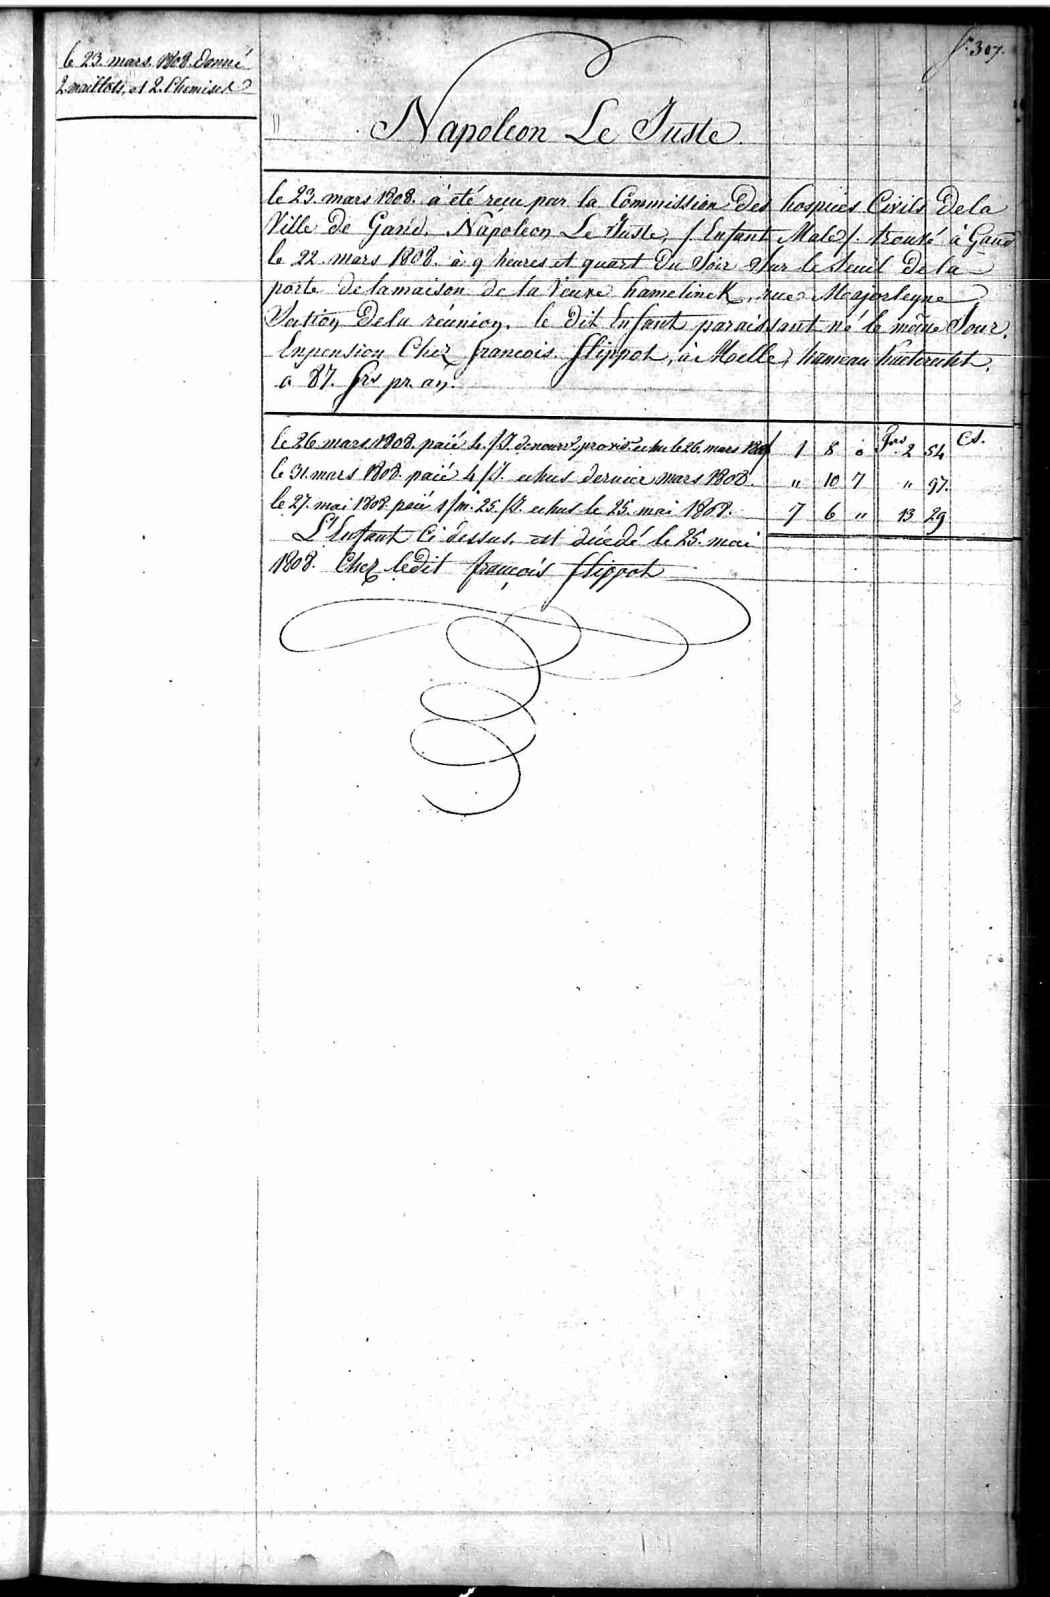 le 23. mars. 1808. donné
2. maillots, et 2. Chemises
f. 307.
Napoleon Le Juste.
le 23. mars 1808. a été reçu par la Commission des hospices Civils de la
Ville de Gand. Napoleon Le Juste, / Enfant Male /. trouvé à Gand
le 22. mars 1808. à 9 heures et quart du Soir Sur le Seuil de la
porte de la maison de la Veuve hamelinck, rue Meajorleyne
Section de la réunion. le dit Enfant paraissant né le même Jour.
En pension Chez francois. flippot, à Melle, hameau
a 87. frs pr. an.
le 26. mars 1808. paié 4. /J. de nourre provisre echu le 26. mars 1808 1 8 0 frs 2 54 Cs.
le 31. mars 1808. paié 4 /J. echus dernier mars 1808. " 10 7 " 97.
le 27. mai 1808. paié 1 /m. 25. /J. echus le 25. mai 1808. 7 6 " 13 29
L'Enfant Ci dessus est décédé le 25. mai
1808. Chez ledit françois flippot